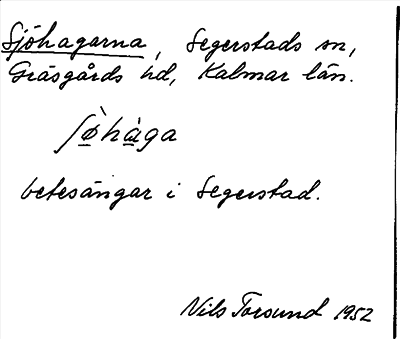 Sjöhagarna, Segerstads sn,
Gräsgårds hd, Kalmar län.
ʃø̀hàga
betesängar i Segerstad.
Nils Torsund 1952